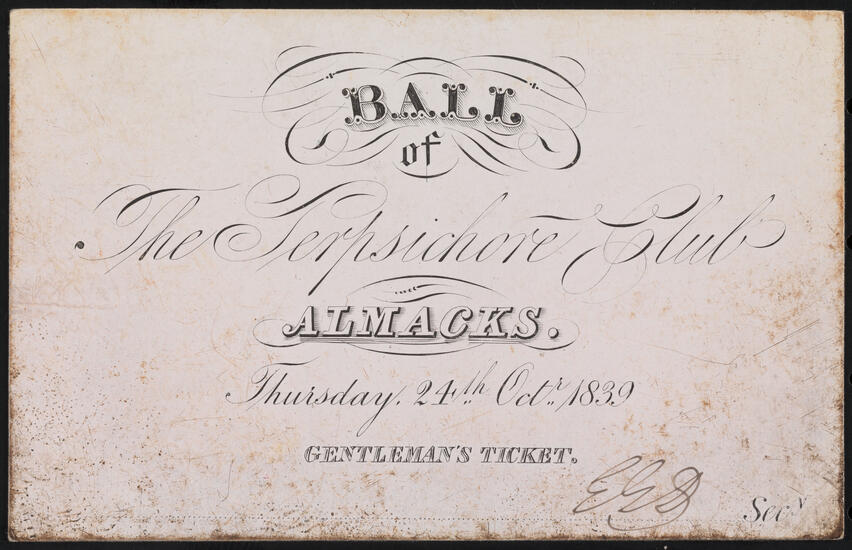 BALL
of
The Terpsichore Club
ALMACKS.
Thursday, 24th Octr. 1839
GENTLEMAN'S TICKET.
Secy